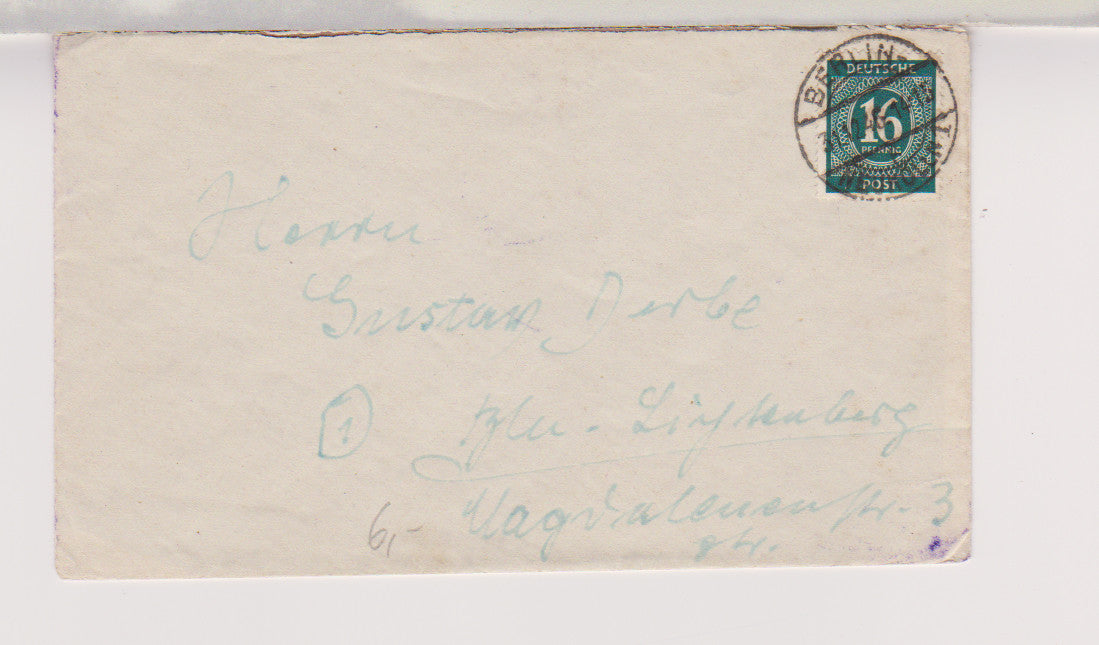 BERLIN
DEUTSCHE
16
PFENNIG
POST
Herrn
Gustav Derbe
1 Bln.-Lichtenberg
Magdalenenstr. 3
6,-